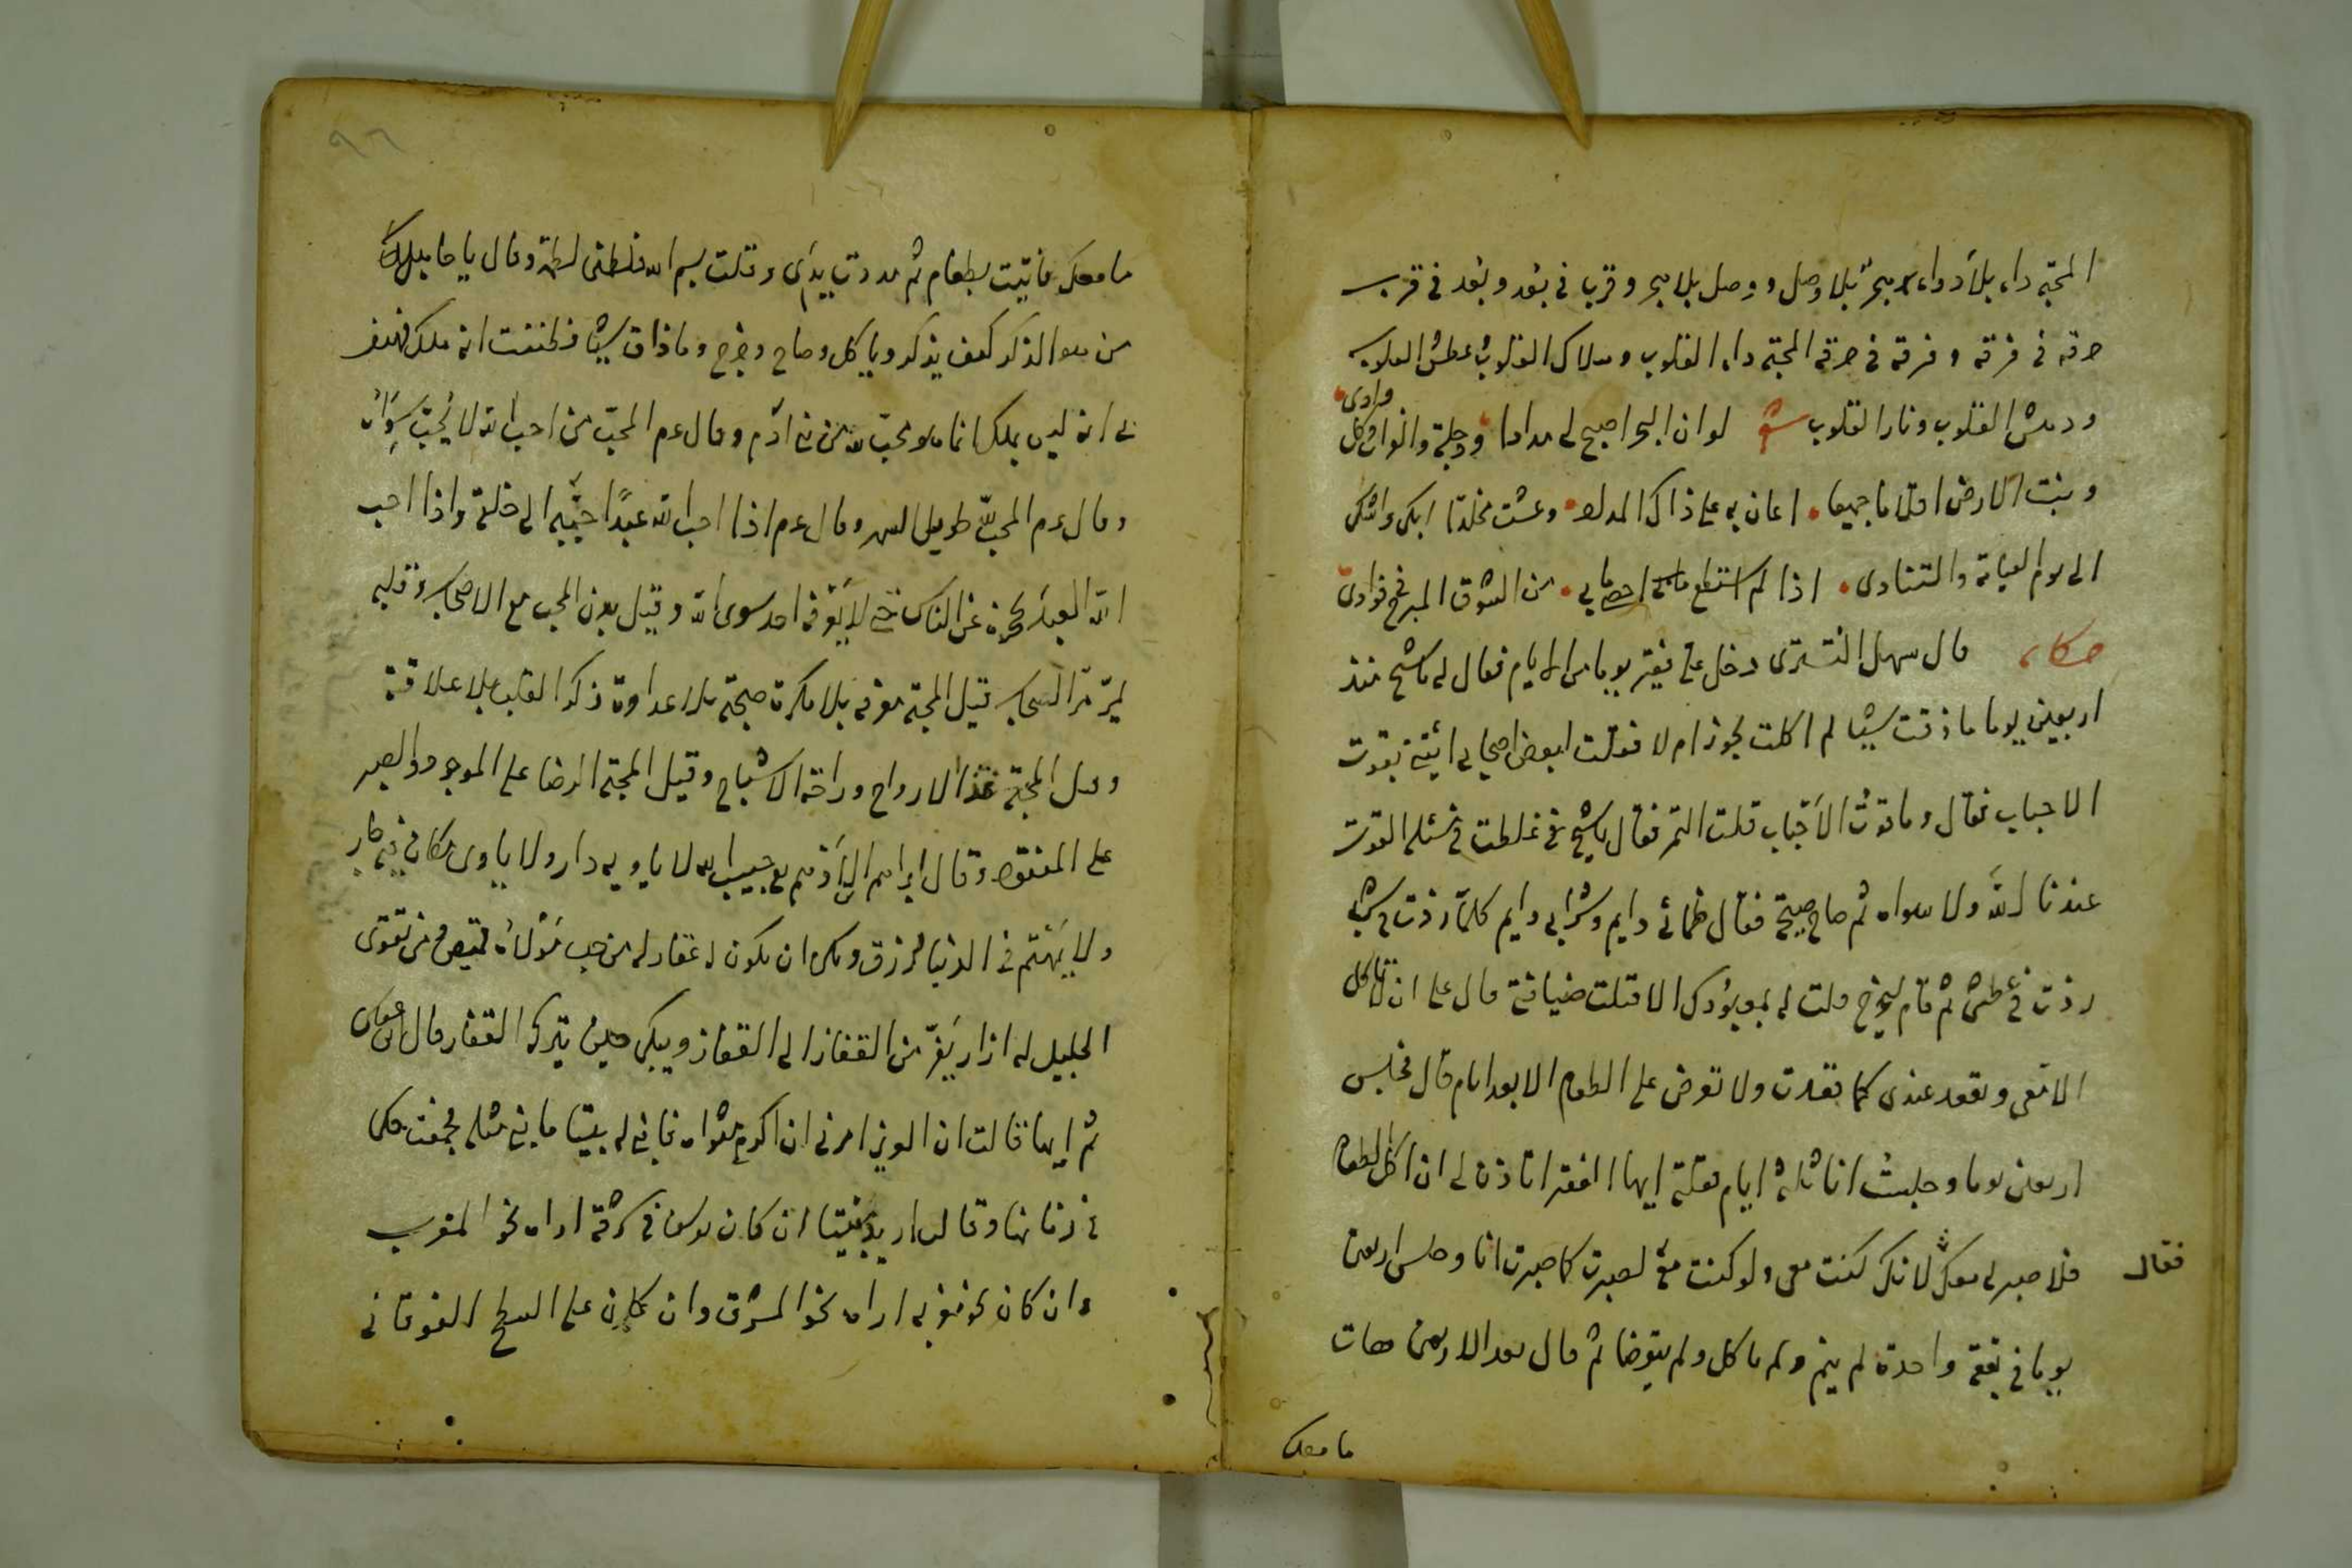 المحبة داء بلا دواء هجر بلا وصل ووصل بلا هجر وقرب في بعد وبعد في قرب
حرقة في فرقة وفرقة في حرقة المحبة داء القلوب وهلاك القلوب عطش القلوب
ودهش القلوب ونار القلوب شعر لو ان البحر اصبح لي مدادا ودجلة والفرات وكل
وادى
ونبت الارض اقلاما جميعا اعان به على ذاك المداد وعشت مخلدا ابكى واشكى
الى يوم القيامة والتنادى اذا لم استطع احصا ما بى من الشوق المبرح فى فوادى
حكاية قال سهل التسترى دخل على فقير يوما من الايام فقال لى يا شيخ منذ
اربعين يوما ما ذقت شيئا لم اكلت يجوز ام لا فقلت لبعض اصحابى ائتنى بقوت
الاحباب فقال وما قوت الاحباب قلت التمر فقال يا شيخ غلطت فى مسئلة القوت
عندنا الله ولا سواه ثم صاح صيحة فقال ظمائى دايم وشرابى دايم كلما زدت فى شرب
زدت فى عطش ثم قام ليخرج قلت له بمعبودك الا قبلت ضيافتى قال على ان تاكل
الا معى وتقعد عندى كما تقعدت ولا تعرض على الطعام الا بعد ايام قال فجلس
اربعين يوما وجلست انا ثلثة ايام فقلت ايها الفقير اتاذن لى ان اكل الطعام
فلا صبر لى معك لانك كنت معى ولو كنت معه لصبرت كما صبرت انا وجلس اربعين
فقال
يوما فى بقعة واحدة لم ينم ولم ياكل ولم يتوضا ثم قال بعد الاربعين هات
ما معك
٩٦
ما معك فاتيت بطعام ثم مددت يداى وقلت بسم الله فلطمنى لطمة وقال يا
من هو الذكر كيف يذكر وياكل وصاح وخرج وما ذاق شيئا فظننت انه ملك فهتف
بى انه ليس بملك انما هو محب لله من بنى ادم وقال عم المحب من احب الله لا يحب سواه
وقال عم المحب لله طويل السهر وقال عم اذا احب الله عبدا حببه الى خلقه واذا احب
الله العبد يحجزه عن الناس حتى لا يعرفه احد سوى الله وقيل بدن المحب مع الاصحاب وقلبه
يمر مر السحاب قيل المحبة معرفة بلا مكرة صحبة بلا عداوة ذكر القلب بلا علاقة
وقيل المحبة غذا الارواح وراحة الاشباح وقيل المحبة الرضا على الموجود والصبر
على المفقود وقال ابراهيم الادهم حبيب الله لا ياويه دار ولا ياوى مكان
ولا يهتم فى الدنيا لرزق وان يكون له عقار له من حب مولاه قميص من تقوى
الجليل له ازار يفر من القفار الى القفار ويبكى حين يتركه القفار قال
ثم ايها قالت ان العزيز امرنى ان اكرم مثواه فابنى له بيتا ما بنى مثله فجمعت
فى زمانها وقالت اريد بيتا ان كان يوسف فى شرقه اراه نحو المغرب
وان كان نحو مغربه اراه نحو المشرق وان كان على السطح الفوقانى